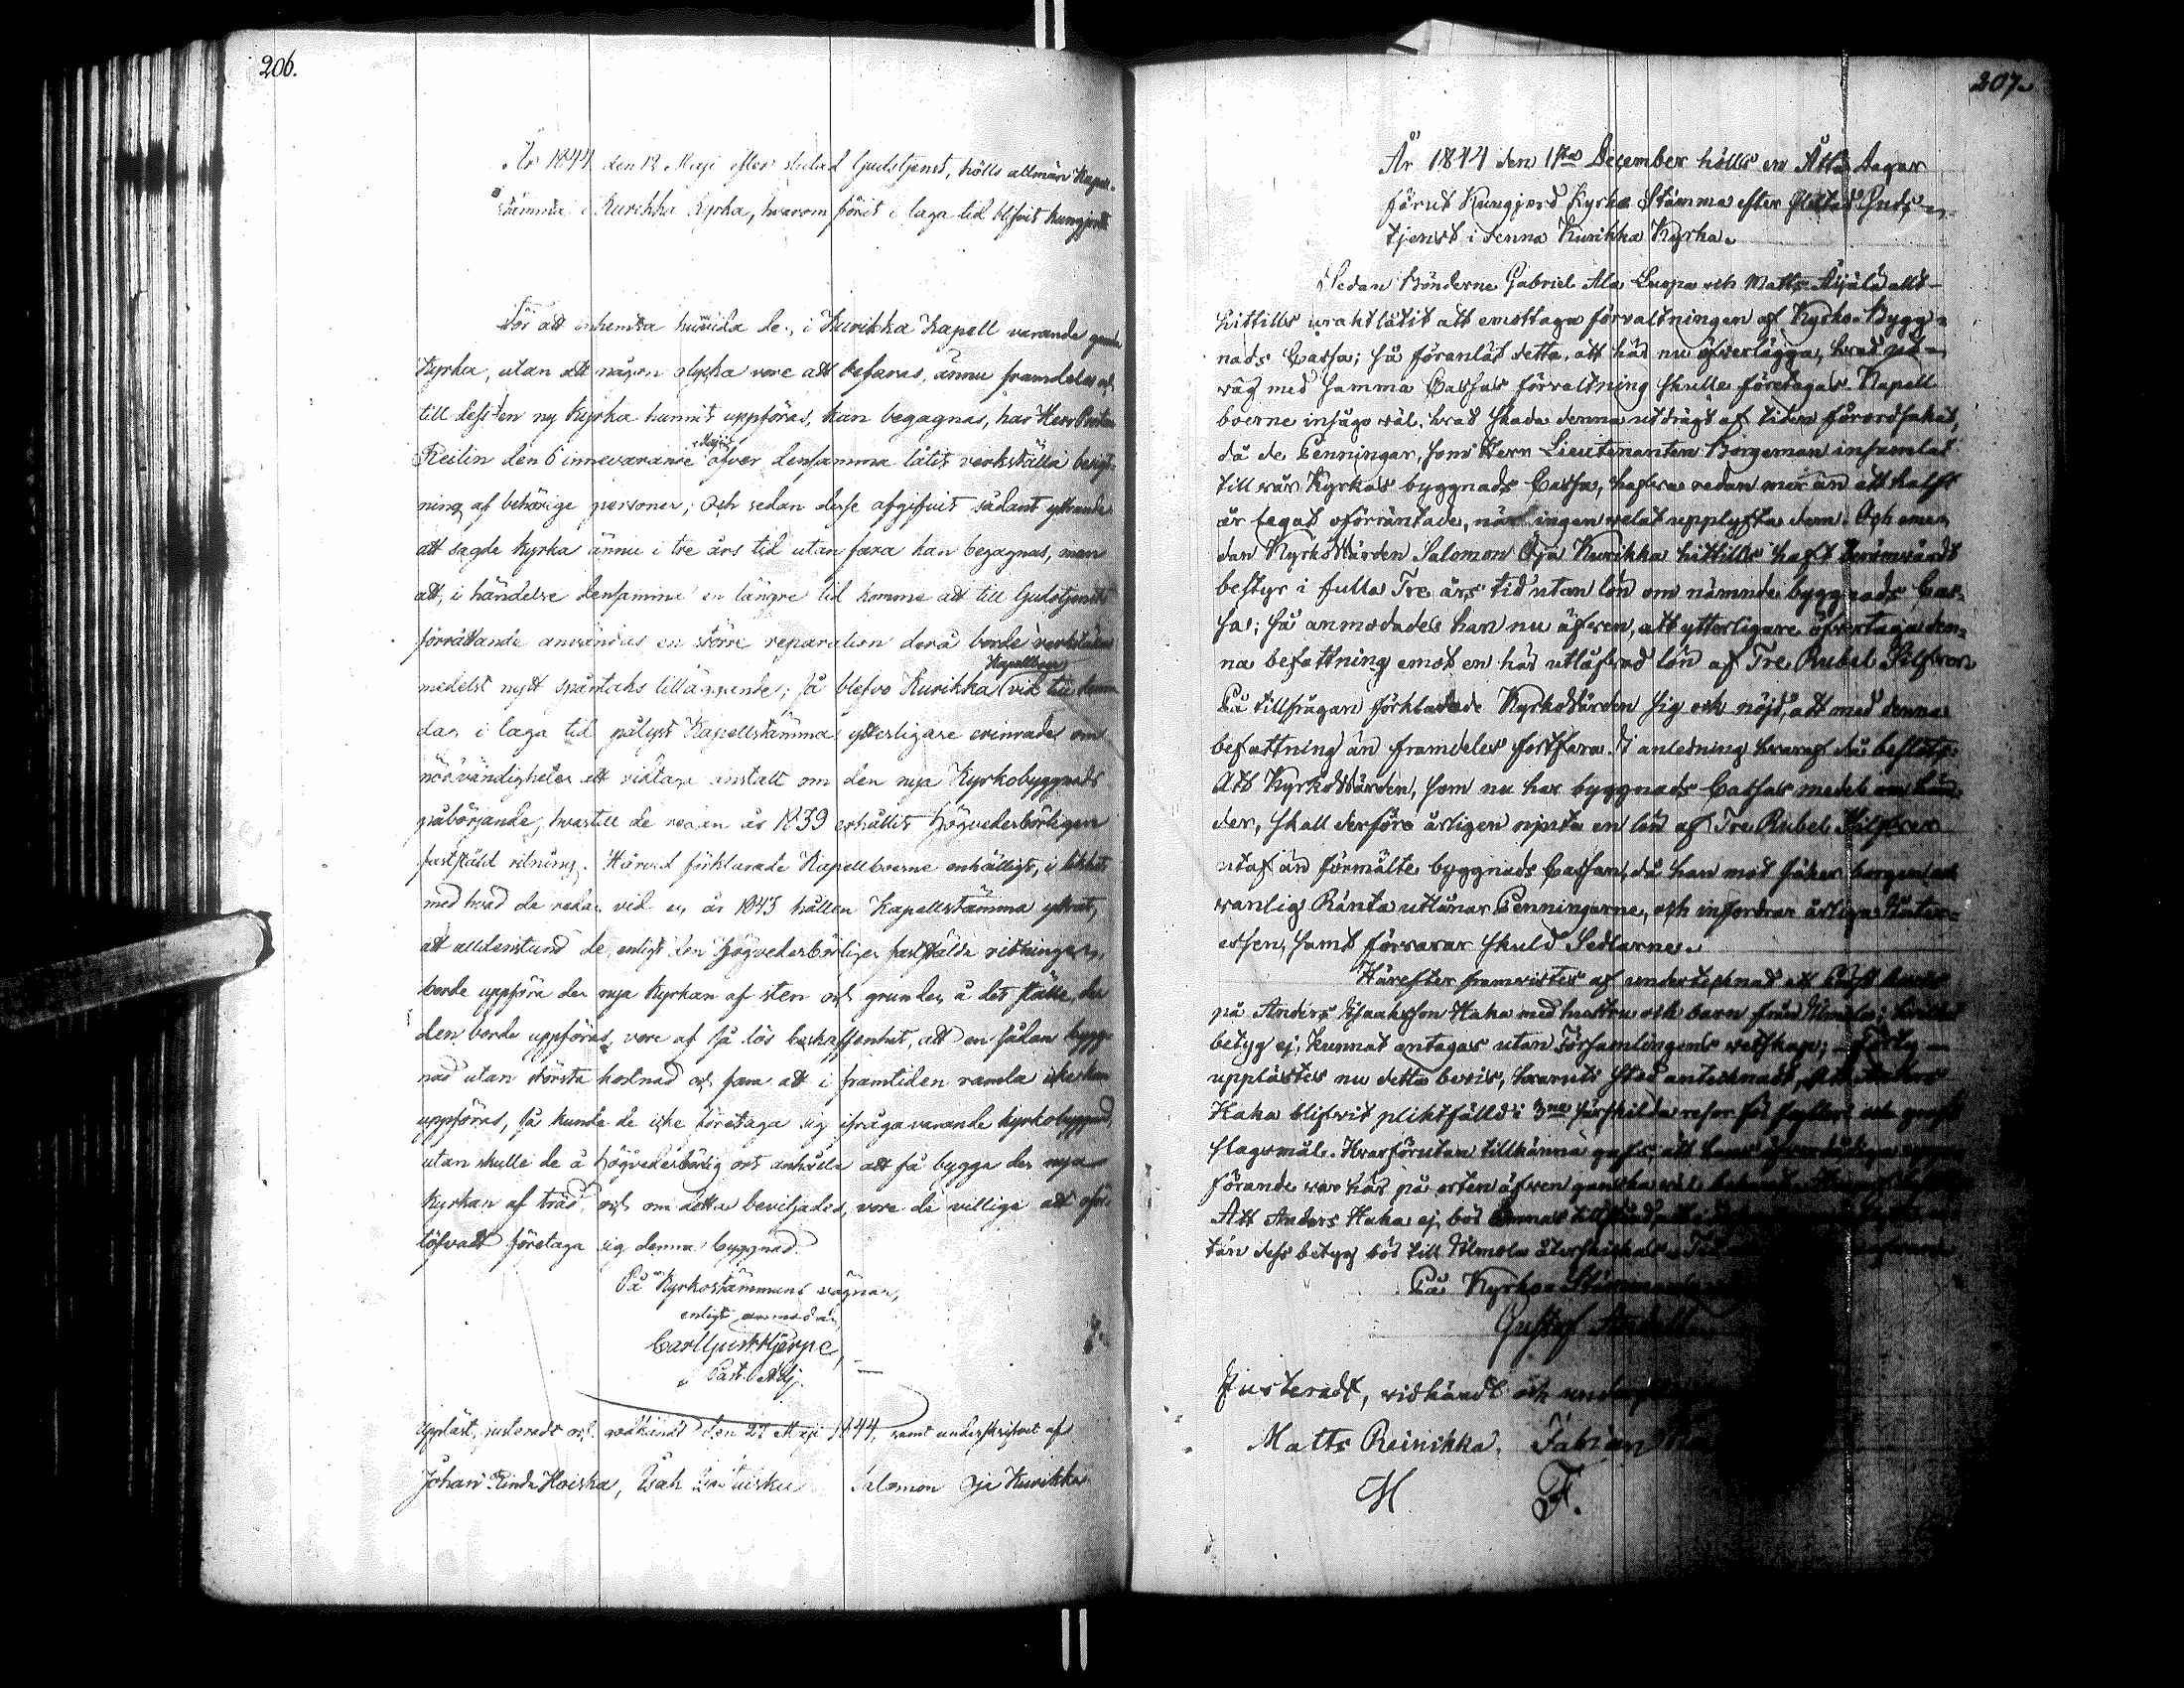 206.
År 1844 den 12 Maji efter slutad Gudstjenst, hölls allmän Kapell-
stämma i Kurikka Kyrka, hvarom förut i laga tid blifvit kungjordt
För att inhemta huruvida de, i Kurikka Kapell varande gamla
Kyrka, utan att någon olycka vore att befaras, ännu framdeles och
till dess en ny Kyrka hunnit uppföras, kan begagnas, har Herr
Reilin den 6 innevarande Maji öfver densamma låtit verkställa besigt-
ning af behörige personer; Och sedan desse afgifvit sådant yttrande
att sagde Kyrka ännu i tre års tid utan fara kan begagnas, men
att, i händelse densamma en längre tid komme att till Gudstjensts
förrättande användas en större reparation derå borde verkställas
medelst nytt spåntaks tilläggande; så blefvo Kurikka Kapellboer vid till denna
dag i laga tid pålyst Kapellstämma ytterligare erinrade om
nödvändigheten att vidtaga anstalt om den nya Kyrkobyggnads
påbörjande, hvartill de redan år 1839 erhållit Högvederbörligen
fastställd ritning. Härvid förklarade Kapellboerne enhälligt, i likhet
med hvad de redan vid en år 1843 hållen Kapellstämma yttrat,
att alldenstund de, enligt den Högvederbörligen fastställda ritningen,
borde uppföra den nya Kyrkan af sten och grunden å det ställe, der
den borde uppföras, vore af så lös beskaffenhet, att en sådan bygg-
nad utan största kostnad och fara att i framtiden ramla icke kan
uppföras, så kunde de icke företaga sig ifrågavarande kyrkobyggnad,
utan skulle de å Högvederbörlig ort anhålla att få bygga den nya
Kyrkan af träd, och om detta beviljades, vore de villige att oför-
töfvadt företaga sig denna byggnad.
På Kyrkostämmans vägnar,
enligt anmodan
Carl Gust. Hjerpe,
Past. Adj.
Uppläst, justeradt och godkändt den 27 Maji 1844, samt underskrifvet af
Johan Rinda Hoiska, Isak Salomon Oja Kurikka
207.
År 1844 den 1sta December hölls en Åtta dagar
förut Kungjord Kyrko Stämma efter slutad Guds-
tjenst i denna Kurikka Kyrka.
Sedan Bönderne Gabriel Ala Luopa och Matts Äijälä allt-
hittills uraktlåtit att emottaga förvaltningen af Kyrko-Bygg-
nads Cassa; så föranlät detta, att här nu öfverlägga, hvad ut-
väg med samma Cassas förvaltning skulle företagas. Kapell
boerne insågo väl, hvad skada denna utdrägt af tiden förordsakat,
då de Penningar, som Herr Lieutenanten Borgeman insamlat
till vår Kyrkas byggnads Cassa, hafva redan mer än ett halft
år legat oförräntade, när ingen velat upplyfta dem. Och eme-
dan Kyrkovärden Salomon Oja Kurikka hittills haft berömvärdt
bestyr i fulla Tre års tid utan lön om nämnde byggnads Cas-
sa; så anmodades han nu äfven, att ytterligare öfvertaga den-
na befattning emot en här utlåfvad lön af Tre Rubel Silfver
På tillfrågan förklarade Kyrkovärden sig och nöjd, att med denna
befattning än framdeles fortfara. I anledning hvaraf då beslöts:
Att Kyrkovärden, som nu har byggnads Cassas medel om hän-
der, skall derföre årligen njuta en lön af Tre Rubel Silfver
utaf än förmälte byggnads Cassan, då han mot säker borgen och
vanlig Ränta utlånar Penningarne, och infordrar årliga Inter-
essen, samt förvarar skuld Sedlarne.
Härefter framvistes af undertecknad ett
på Anders Isaaksson Haka med hustru och barn från Ilmola;
betyg ej kunnat antagas utan Församlingens vetskap;
upplästes nu detta bevis, hvaruti stod antecknadt, Att Anders
Haka blifvit pliktfälld i 3ne särskilda resor för fylleri och
slagsmål. Hvarförutan tillkänna gafs att hans
förande var här på orten äfven ganska väl
Att Anders Haka ej bör lemnas
tan dess betyg bör till Ilmola återskickas.
På Kyrko-Stämmans
Gustaf
Justeradt, vidkändt och
Matts Reinikka. Fabian
M F.